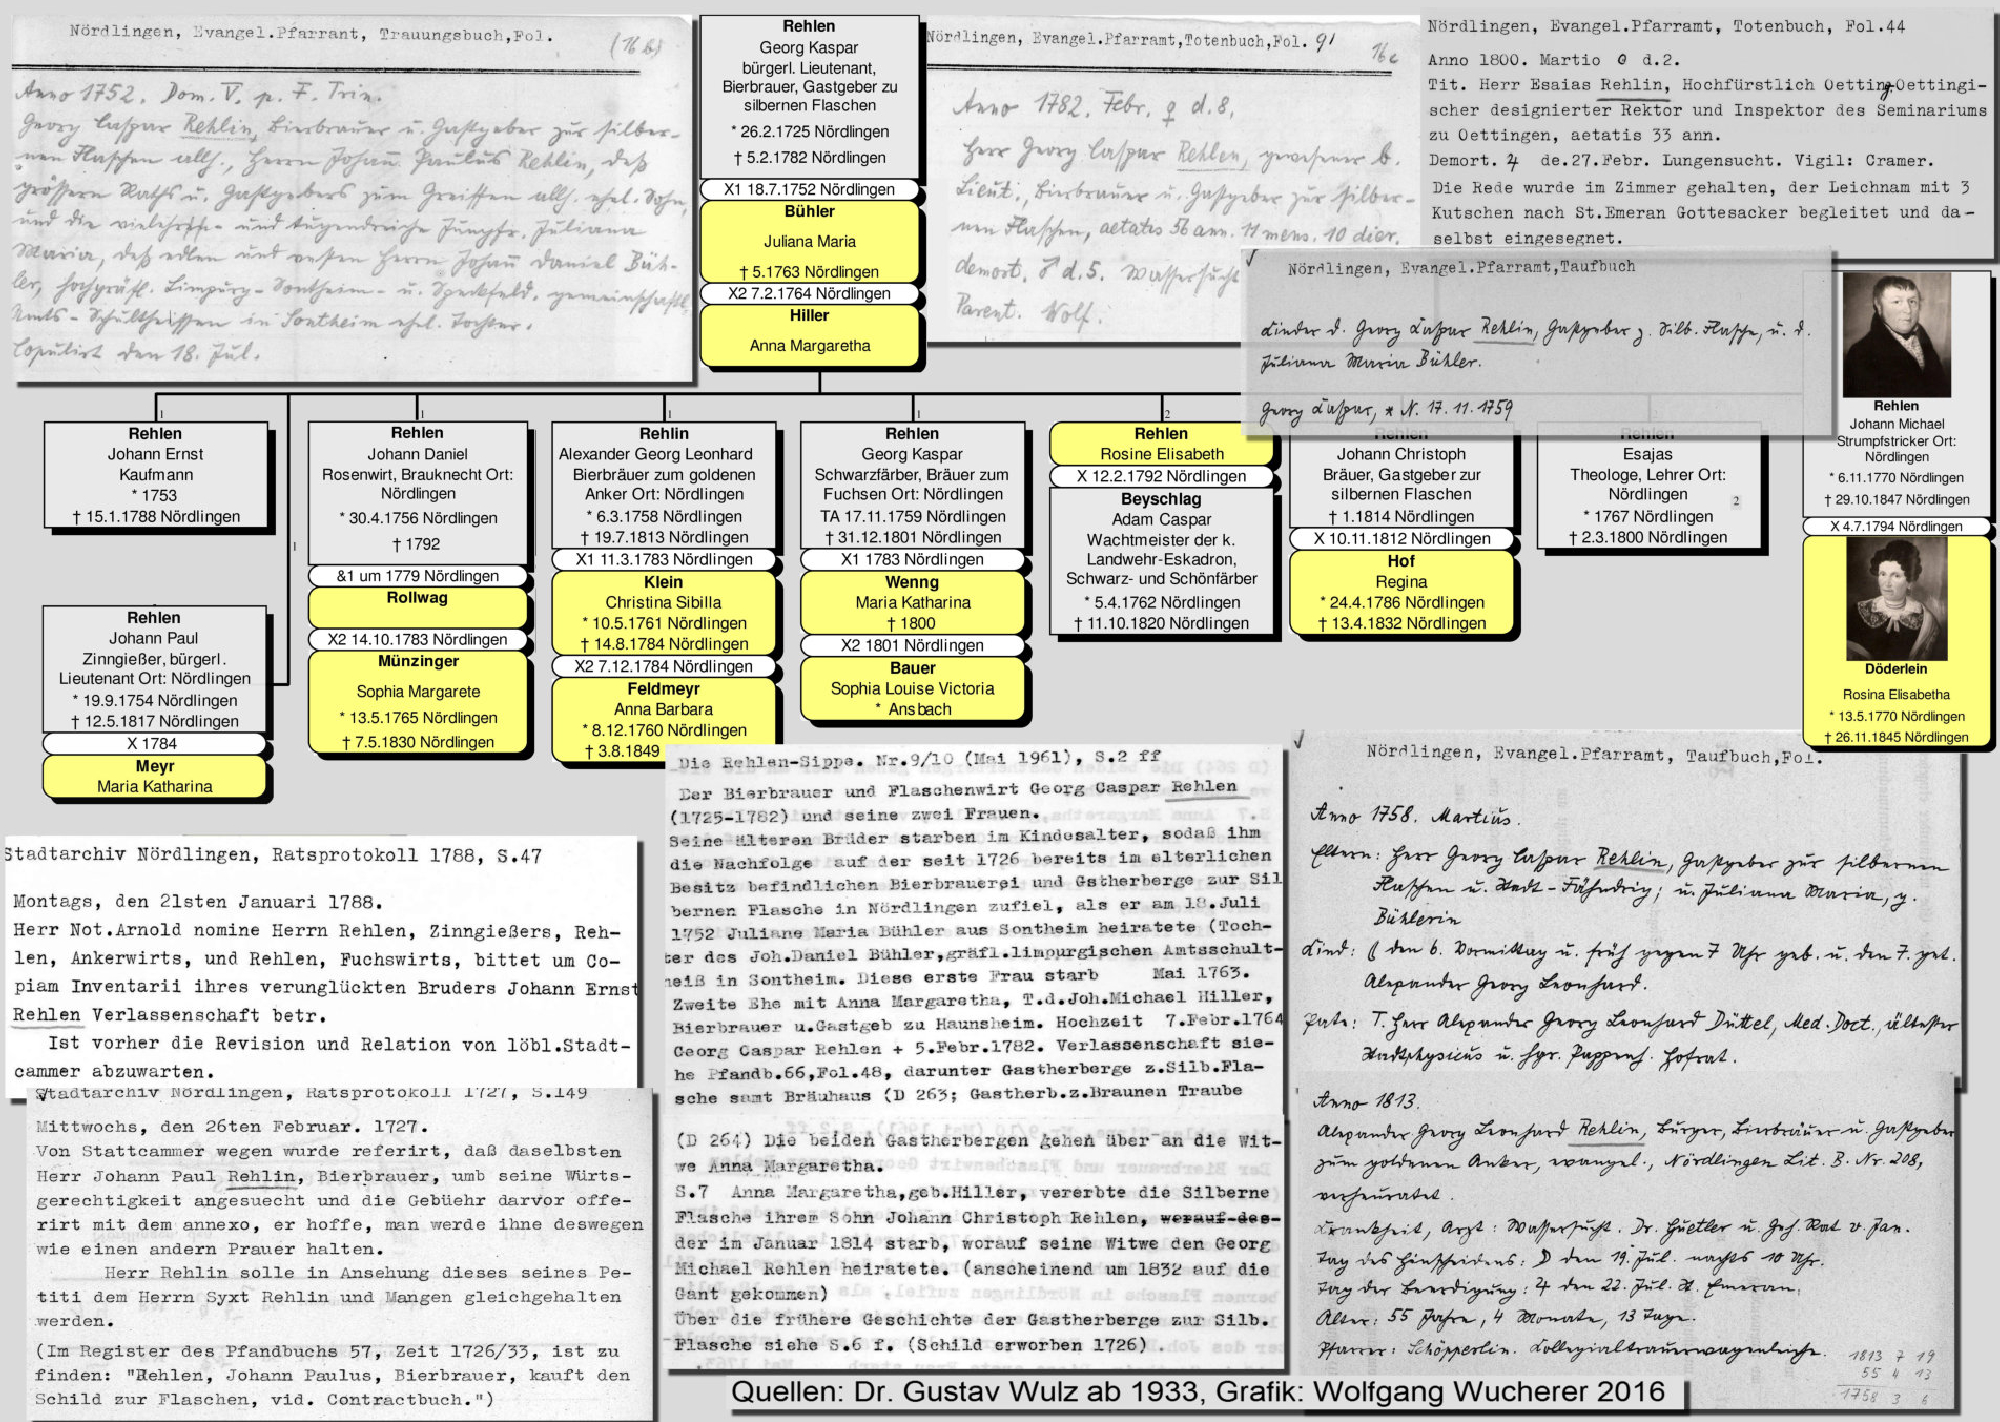 Nördlingen, Evangel.Pfarramt, Trauungsbuch,Fol.
(16 b)
Anno 1752. Dom. V. p. F. Trin.
Georg Caspar Rehlin, Bierbrauer u. Gastgeber zur silber-
nen Flaschen allh., Herrn Johann Paulus Rehlin, deß
größern Raths u. Gastgebers zum Greiffen allh. ehel. Sohn,
und die vielehrs- und tugendreiche Jungfr. Juliana
Maria, deß edlen und vesten Herrn Johann Daniel Büh-
ler, hochgräfl. Limpurg-Sontheim- u. Speckfeld. gemeinschaftl.
Amts-Schultheissen in Sontheim ehel. Tochter.
Copulirt den 18. Jul.
Rehlen
Georg Kaspar
bürgerl. Lieutenant,
Bierbrauer, Gastgeber zu
silbernen Flaschen
* 26.2.1725 Nördlingen
† 5.2.1782 Nördlingen
X1 18.7.1752 Nördlingen
Bühler
Juliana Maria
† 5.1763 Nördlingen
X2 7.2.1764 Nördlingen
Hiller
Anna Margaretha
Nördlingen, Evangel.Pfarramt,Totenbuch,Fol. 91
16c
Anno 1782. Febr. ♀ d. 8.
Herr Georg Caspar Rehlen, gewesener b.
Lieut., Bierbrauer u. Gastgeber zur silber-
nen Flaschen, aetatis 56 ann. 11 mens. 10 dier.
demort. ♂ d. 5. Wassersucht
Parent. Wolf.
Nördlingen, Evangel.Pfarramt, Totenbuch, Fol.44
Anno 1800. Martio d.2.
Tit. Herr Esaias Rehlin, Hochfürstlich Oetting.Oettingi-
scher designierter Rektor und Inspektor des Seminariums
zu Oettingen, aetatis 33 ann.
Demort. 4 de.27.Febr. Lungensucht. Vigil: Cramer.
Die Rede wurde im Zimmer gehalten, der Leichnam mit 3
Kutschen nach St.Emeran Gottesacker begleitet und da-
selbst eingesegnet.
Nördlingen, Evangel.Pfarramt,Taufbuch
Kinder d. Georg Caspar Rehlin, Gastgeber z. Silb. Flasche, u. d.
Juliana Maria Bühler.
Georg Caspar, * N. 17.11.1759
Rehlen
Johann Ernst
Kaufmann
* 1753
† 15.1.1788 Nördlingen
Rehlen
Johann Paul
Zinngießer, bürgerl.
Lieutenant Ort: Nördlingen
* 19.9.1754 Nördlingen
† 12.5.1817 Nördlingen
X 1784
Meyr
Maria Katharina
Rehlen
Johann Daniel
Rosenwirt, Brauknecht Ort:
Nördlingen
* 30.4.1756 Nördlingen
† 1792
&1 um 1779 Nördlingen
Rollwag
X2 14.10.1783 Nördlingen
Münzinger
Sophia Margarete
* 13.5.1765 Nördlingen
† 7.5.1830 Nördlingen
Rehlin
Alexander Georg Leonhard
Bierbräuer zum goldenen
Anker Ort: Nördlingen
* 6.3.1758 Nördlingen
† 19.7.1813 Nördlingen
X1 11.3.1783 Nördlingen
Klein
Christina Sibilla
* 10.5.1761 Nördlingen
† 14.8.1784 Nördlingen
X2 7.12.1784 Nördlingen
Feldmeyr
Anna Barbara
* 8.12.1760 Nördlingen
† 3.8.1849
Rehlen
Georg Kaspar
Schwarzfärber, Bräuer zum
Fuchsen Ort: Nördlingen
TA 17.11.1759 Nördlingen
† 31.12.1801 Nördlingen
X1 1783 Nördlingen
Wenng
Maria Katharina
† 1800
X2 1801 Nördlingen
Bauer
Sophia Louise Victoria
* Ansbach
Rehlen
Rosine Elisabeth
X 12.2.1792 Nördlingen
Beyschlag
Adam Caspar
Wachtmeister der k.
Landwehr-Eskadron,
Schwarz- und Schönfärber
* 5.4.1762 Nördlingen
† 11.10.1820 Nördlingen
Rehlen
Johann Christoph
Bräuer, Gastgeber zur
silbernen Flaschen
† 1.1814 Nördlingen
X 10.11.1812 Nördlingen
Hof
Regina
* 24.4.1786 Nördlingen
† 13.4.1832 Nördlingen
Rehlen
Esajas
Theologe, Lehrer Ort:
Nördlingen
* 1767 Nördlingen
† 2.3.1800 Nördlingen
Rehlen
Johann Michael
Strumpfstricker Ort:
Nördlingen
* 6.11.1770 Nördlingen
† 29.10.1847 Nördlingen
X 4.7.1794 Nördlingen
Döderlein
Rosina Elisabetha
* 13.5.1770 Nördlingen
† 26.11.1845 Nördlingen
Stadtarchiv Nördlingen, Ratsprotokoll 1788, S.47
Montags, den 21sten Januari 1788.
Herr Not.Arnold nomine Herrn Rehlen, Zinngießers, Reh-
len, Ankerwirts, und Rehlen, Fuchswirts, bittet um Co-
piam Inventarii ihres verunglückten Bruders Johann Ernst
Rehlen Verlassenschaft betr.
Ist vorher die Revision und Relation von löbl.Stadt-
cammer abzuwarten.
Stadtarchiv Nördlingen, Ratsprotokoll 1727, S.149
Mittwochs, den 26ten Februar. 1727.
Von Stattcammer wegen wurde referirt, daß daselbsten
Herr Johann Paul Rehlin, Bierbrauer, umb seine Würts-
gerechtigkeit angesuecht und die Gebüehr darvor offe-
rirt mit dem annexo, er hoffe, man werde ihne deswegen
wie einen andern Prauer halten.
Herr Rehlin solle in Ansehung dieses seines Pe-
titi dem Herrn Syxt Rehlin und Mangen gleichgehalten
werden.
(Im Register des Pfandbuchs 57, Zeit 1726/33, ist zu
finden: "Rehlen, Johann Paulus, Bierbrauer, kauft den
Schild zur Flaschen, vid. Contractbuch.")
Die Rehlen-Sippe. Nr.9/10 (Mai 1961), S.2 ff
Der Bierbrauer und Flaschenwirt Georg Caspar Rehlen
(1725-1782) und seine zwei Frauen.
Seine älteren Brüder starben im Kindesalter, sodaß ihm
die Nachfolge auf der seit 1726 bereits im elterlichen
Besitz befindlichen Bierbrauerei und Gstherberge zur Sil
bernen Flasche in Nördlingen zufiel, als er am 18.Juli
1752 Juliane Maria Bühler aus Sontheim heiratete (Toch-
ter des Joh.Daniel Bühler,gräfl.limpurgischen Amtsschult-
heiß in Sontheim. Diese erste Frau starb Mai 1763.
Zweite Ehe mit Anna Margaretha, T.d.Joh.Michael Hiller,
Bierbrauer u.Gastgeb zu Haunsheim. Hochzeit 7.Febr.1764
Georg Caspar Rehlen + 5.Febr.1782. Verlassenschaft sie-
he Pfandb.66,Fol.48, darunter Gastherberge z.Silb.Fla-
sche samt Bräuhaus (D 263; Gastherb.z.Braunen Traube
(D 264) Die beiden Gastherbergen gehen über an die Wit-
we Anna Margaretha.
S.7 Anna Margaretha,geb.Hiller, vererbte die Silberne
Flasche ihrem Sohn Johann Christoph Rehlen, worauf des-
der im Januar 1814 starb, worauf seine Witwe den Georg
Michael Rehlen heiratete. (anscheinend um 1832 auf die
Gant gekommen)
Über die frühere Geschichte der Gastherberge zur Silb.
Flasche siehe S.6 f. (Schild erworben 1726).
Nördlingen, Evangel.Pfarramt, Taufbuch,Fol.
Anno 1758. Martius.
Eltern: Herr Georg Caspar Rehlin, Gastgeber zur silbernen
Flaschen u. Stadt-Fähndrig; u. Juliana Maria, g.
Bühlerin
Kind: den 6. Vormittag u. früh gegen 7 Uhr geb. u. den 7. get.
Alexander Georg Leonhard.
Pate: T. Herr Alexander Georg Leonhard Düttel, Med. Doct., ältester
Stadtphysicus u. hgr. Pappenh. Hofrat.
Anno 1813.
Alexander Georg Leonhard Rehlin, Bürger, Bierbräuer u. Gastgeber
zum goldenen Anker, evangel., Nördlingen Lit. B. Nr. 208,
verheuratet.
Krankheit, Arzt: Wassersucht. Dr. Huetler u. Geh. Rat v. Jan.
Tag des Hinscheidens: den 19. Jul. nachts 10 Uhr.
Tag der Beerdigung: 4 den 22. Jul. St. Emeran.
Alter: 55 Jahre, 4 Monate, 13 Tage.
Pfarrer: Schöpperlin. Collegialtrauerwagenleiche.
1813 7 19
55 4 13
1758 3 6
Quellen: Dr. Gustav Wulz ab 1933, Grafik: Wolfgang Wucherer 2016